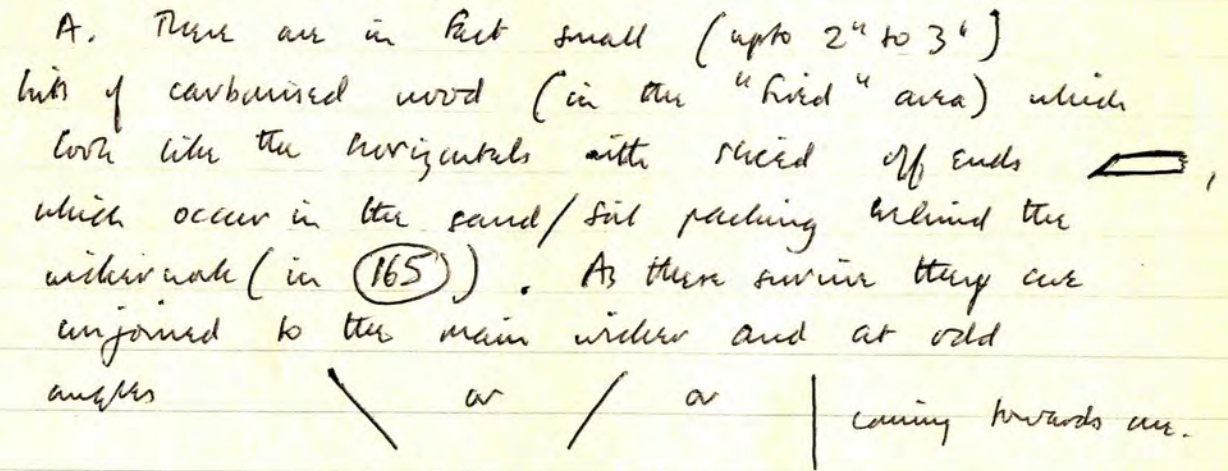 A. There are in fact small (upto 2" to 3")
bits of carbonised wood (in the "fired" area) which
look like the horizontals with sliced off ends ,
which occur in the sand/silt packing behind the
wickerwork (in 165)). As these survive they are
unjoined to the main wicker and at odd
angles \ or / or | coming towards one.